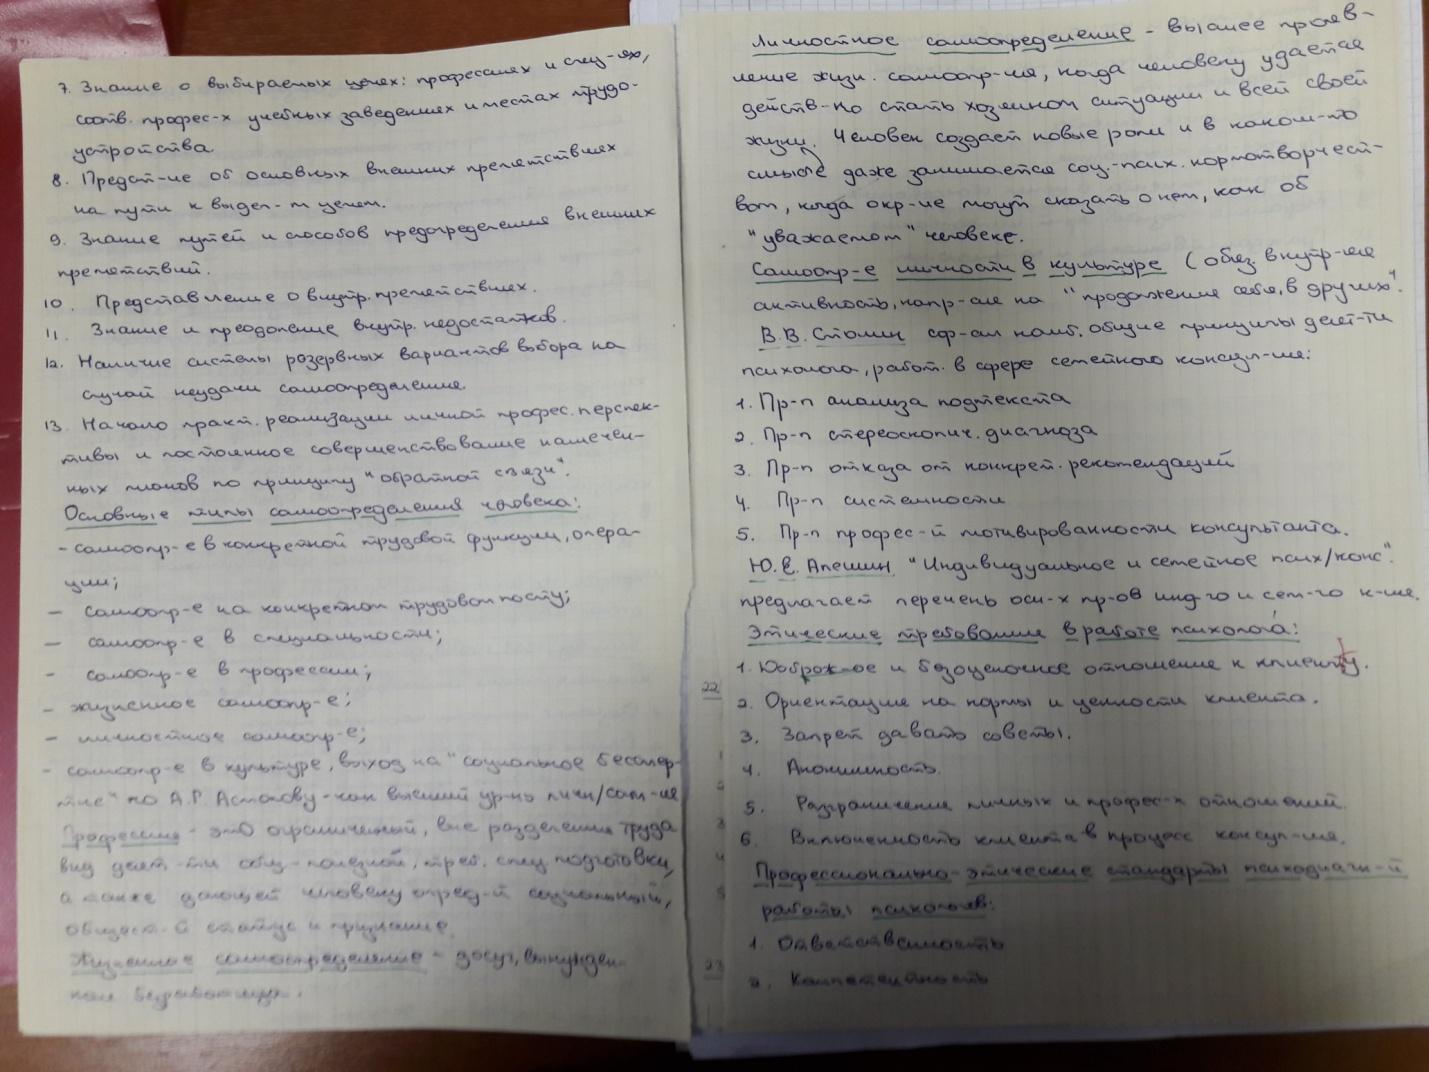 7. Знание о выбираемых целях: профессиях и спец-ях,
соотв. профес-х учебных заведениях и местах трудо-
устройства.
8. Предст-ие об основных внешних препятствиях
на пути к выдел-м целям.
9. Знание путей и способов предопределения внешних
препятствий.
10. Представление о внутр. препятствиях.
11. Знание и преодоление внутр. недостатков.
12. Наличие системы резервных вариантов выбора на
случай неудачи самоопределения.
13. Начало практ. реализации личной профес. перспек-
тивы и постоянное совершенствование намечен-
ных планов по принципу "обратной связи".
Основные типы самоопределения человека:
- самоопр-е в конкретной трудовой функции, опера-
ции;
- самоопр-е на конкретном трудовом посту;
- самоопр-е в специальности;
- самоопр-е в профессии;
- жизненное самоопр-е;
- личностное самоопр-е;
- самоопр-е в культуре, выход на "социальное бессмер-
тие" по А.Г. Асмолову - как высший ур-нь личн/сам-ия
Профессия - это ограниченный, вне разделения труда
вид деят-ти общ.-полезной, треб. спец. подготовки,
а также дающей человеку опред-й социальный,
общест-й статус и признание.
Жизненное самоопределение - досуг, вынужден-
ном безработица.
Личностное самоопределение - высшее прояв-
ление жизн. самоопр-ия, когда человеку удается
действ-но стать хозяином ситуации и всей своей
жизни. Человек создает новые роли и в каком-то
смысле даже занимается соц.-псих. нормотворчест-
вом, когда окр-ие могут сказать о нем, как об
"уважаемом" человеке.
Самоопр-е личности в культуре (обяз. внутр-яя
активность, напр-ая на "продолжение себя, в других".
В.В. Столин сф-ал наиб. общие принципы деят-ти
психолога, работ. в сфере семейного консул-ия:
1. Пр-п анализа подтекста
2. Пр-п стереоскопич. диагноза
3. Пр-п отказа от конкрет. рекомендаций
4. Пр-п системности
5. Пр-п профес-й мотивированности консультанта.
Ю.Е. Алешин "Индивидуальное и семейное псих/конс".
предлагает перечень осн-х пр-ов инд-го и сем-го к-ия.
Этические требования в работе психолога:
1. Доброж-ое и безоценочное отношение к клиенту.
22
2. Ориентация на нормы и ценности клиента.
3. Запрет давать советы.
4. Анонимность.
5. Разграничение личных и профес-х отношений.
6. Включенность клиента в процесс консул-ия.
Профессионально-этические стандарты психодиагн-й
работы психологов:
1. Ответственность
23
2. Компетентность